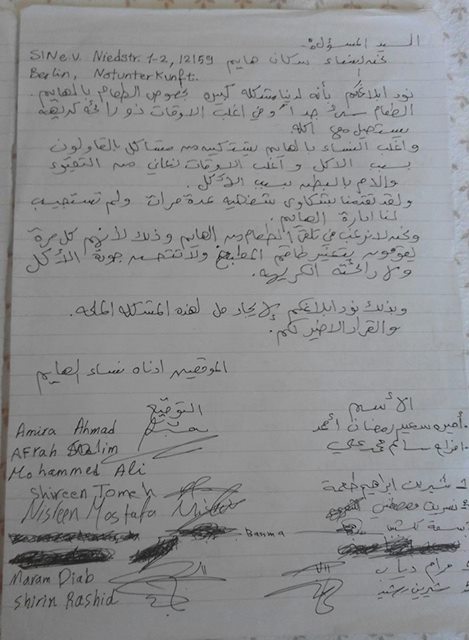 السيد المسؤول:
نحن نساء سكان هايم SINe.V. Niedstr. 1-2, 12159
Berlin, Notunterkunft.
نود ابلاغكم بأنه لدينا مشكلة كبيرة بخصوص الطعام بالهايم
الطعام سيئ جداً وفي اغلب الاوقات ذو رائحة كريهة
يستحيل معها اكله
واغلب النساء بالهايم يشتكين من مشاكل بالقاولون
بسبب الاكل و اغلب الاوقات نعاني من التقيوء
والام بالبطن بسبب الأكل.
ولقد تقدمنا بشكاوى شفهية عدة مرات ولم تستجيب
لنا ادارة الهايم.
ونحن لا نرغب في تلقي الطعام من الهايم وذلك لأنهم كل مرة
يقومون بتغيير طاقم المطبخ ولا تتحسن جودة الأكل
ولا رائحته الكريهة.
وبذلك نود ابلاغكم لإيجاد حل لهذه المشكلة الملحة.
والقرار الاخير لكم.
الموقعين ادناه نساء الهايم
الأسم التوقيع
أميره سعيد رمضان أحمد Amira Ahmad
افراح سالم محمد علي Afrah Salim
Mohammed Ali
شيرين ابراهيم طعمة Shireen Tomeh
نسرين مصطفى Nisreen Mostafa
بسمة Basma
مرام دياب Maram Diab
شيرين رشيد Shirin Rashid